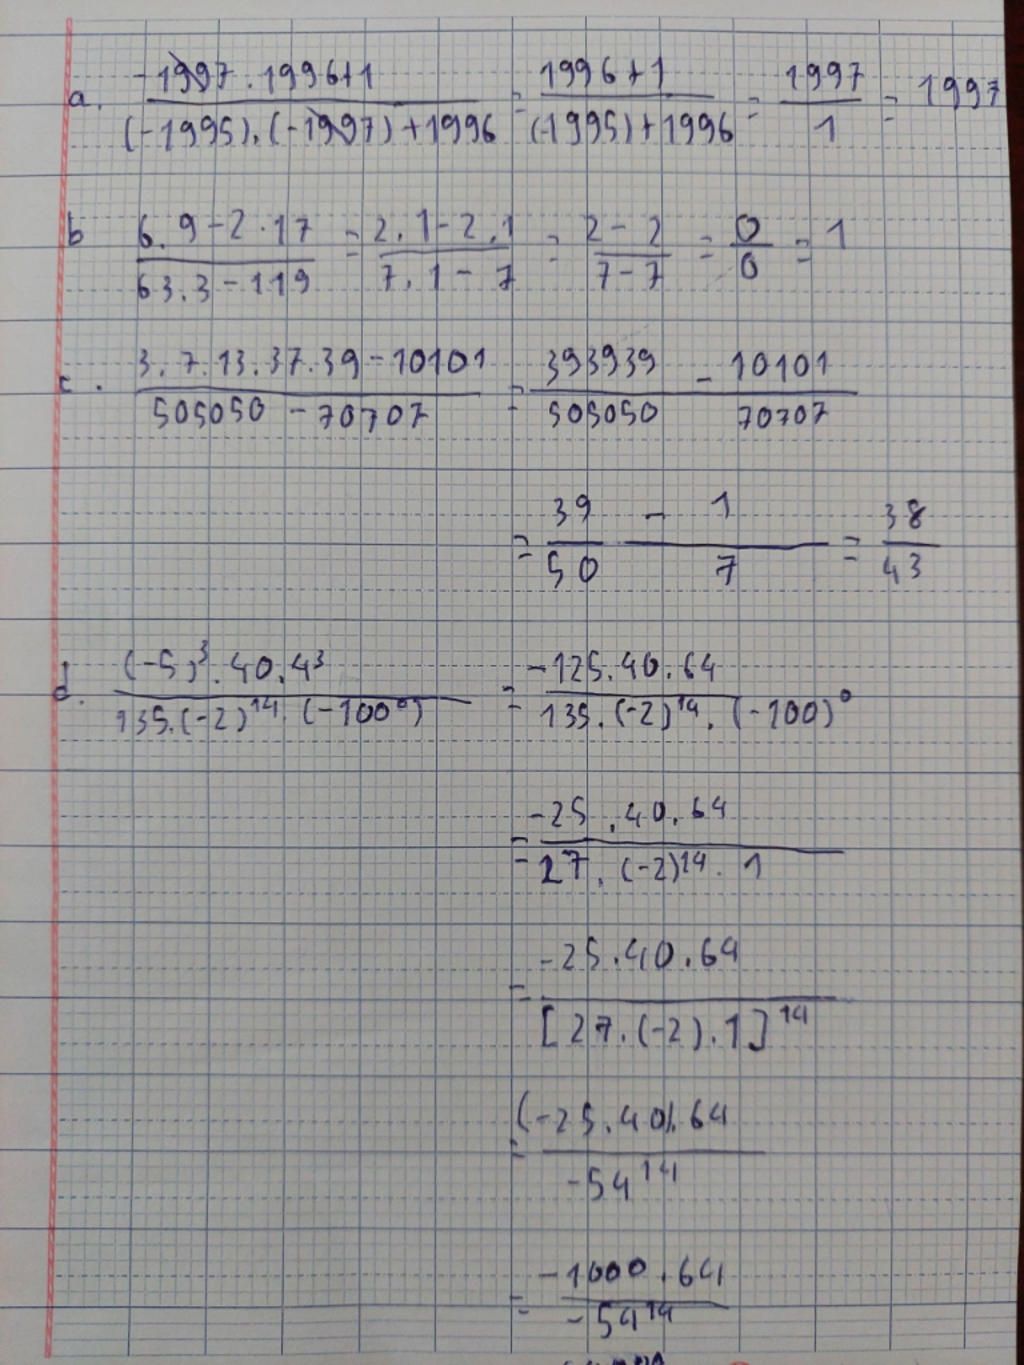 a. -1997 . 1996+1 / (-1995).(-1997)+1996 = 1996+1 / (-1995)+1996 = 1997/1 = 1997
b 6.9-2.17 / 63.3-119 = 2.1-2.1 / 7.1-7 = 2-2 / 7-7 = 0/0 = 1
c. 3.7.13.37.39-10101 / 505050-70707 = 393939 - 10101 / 505050 70707
= 39 - 1 / 50 7 = 38/43
d. (-5)³.40.4³ / 135.(-2)¹⁴.(-100⁰) = -125.40.64 / 135.(-2)¹⁴.(-100)⁰
= -25.40.64 / 27.(-2)¹⁴.1
= -25.40.64 / [27.(-2).1]¹⁴
= (-25.40).64 / -54¹⁴
= -1000.64 / -54¹⁴